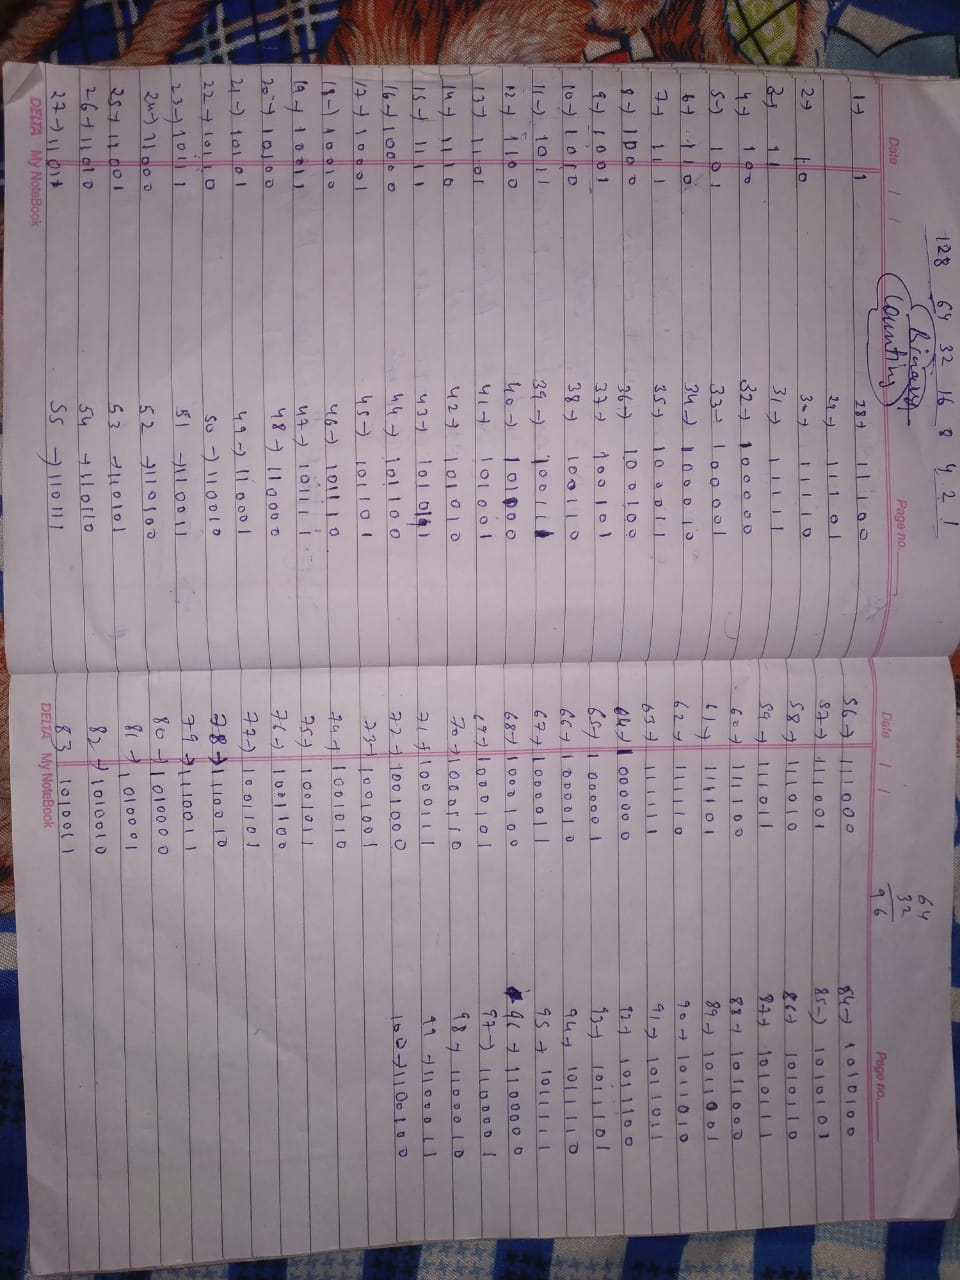 128 64 32 16 8 4 2 1
Binary
Counting
Date / /
Page no.
1→ 1
2→ 10
3→ 11
4→ 100
5→ 101
6→ 110
7→ 111
8→ 1000
9→ 1001
10→ 1010
11→ 1011
12→ 1100
13→ 1101
14→ 1110
15→ 1111
16→ 10000
17→ 10001
18→ 10010
19→ 10011
20→ 10100
21→ 10101
22→ 10110
23→ 10111
24→ 11000
25→ 11001
26→ 11010
27→ 11011
28→ 11100
29→ 11101
30→ 11110
31→ 11111
32→ 100000
33→ 100001
34→ 100010
35→ 100011
36→ 100100
37→ 100101
38→ 100110
39→ 100111
40→ 101000
41→ 101001
42→ 101010
43→ 101011
44→ 101100
45→ 101101
46→ 101110
47→ 101111
48→ 110000
49→ 110001
50→ 110010
51→ 110011
52→ 110100
53→ 110101
54→ 110110
55→ 110111
DELTA My NoteBook
64
32
96
Date / /
Page no.
56→ 111000
57→ 111001
58→ 111010
59→ 111011
60→ 111100
61→ 111101
62→ 111110
63→ 111111
64→ 1000000
65→ 1000001
66→ 1000010
67→ 1000011
68→ 1000100
69→ 1000101
70→ 1000110
71→ 1000111
72→ 1001000
73→ 1001001
74→ 1001010
75→ 1001011
76→ 1001100
77→ 1001101
78→
79→
80→ 1010000
81→ 1010001
82→ 1010010
83 1010011
84→ 1010100
85→ 1010101
86→ 1010110
87→ 1010111
88→ 1011000
89→ 1011001
90→ 1011010
91→ 1011011
92→ 1011100
93→ 1011101
94→ 1011110
95→ 1011111
96→ 1100000
97→ 1100001
98→ 1100010
99→ 1100011
100→ 1100100
DELTA My NoteBook